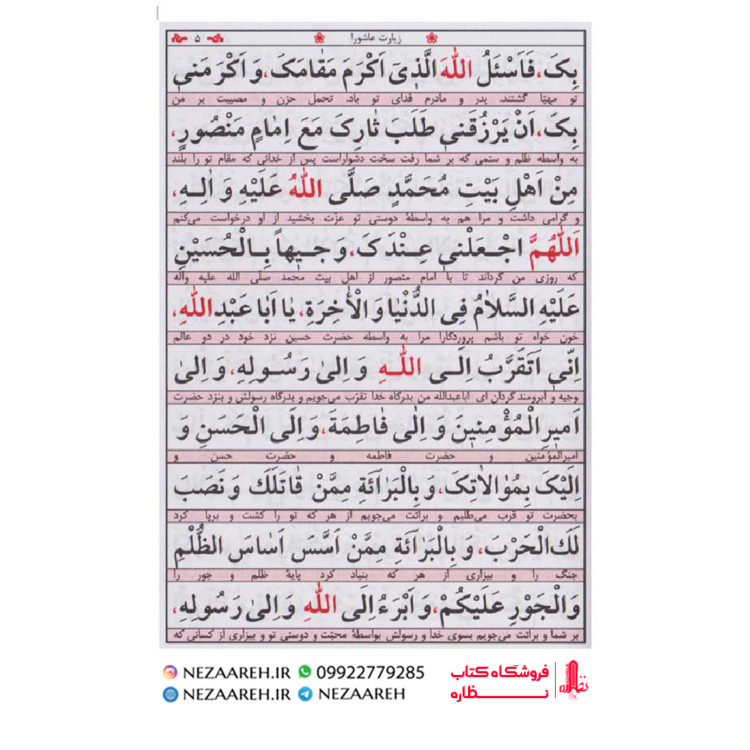 زیارت عاشورا ۵
بِکَ، فَاَسْئَلُ اللّٰهَ الَّذٖی اَکْرَمَ مَقٰامَکَ، وَ اَکْرَمَنیٖ
تو مهیّا گشتند، پدر و مادرم فدای تو باد، تحمل حزن و مصیبت بر من
بِکَ، اَنْ یَرْزُقَنیٖ طَلَبَ ثٰارِکَ مَعَ اِمٰامٍ مَنْصُورٍ،
به واسطه ظلم و ستمی که بر شما رفت سخت دشواراست پس از خدائی که مقام تو را بلند
مِنْ اَهْلِ بَیْتِ مُحَمَّدٍ صَلَّی اللّٰهُ عَلَیْهِ وَ اٰلِهِ،
و گرامی داشت و مرا هم به واسطۀ دوستی تو عزت بخشید از او درخواست می‌کنم
اَللّٰهُمَّ اجْعَلْنیٖ عِنْدَکَ، وَجٖیهاً بِالْحُسَیْنِ
که روزی من گرداند تا با امام منصور از اهل بیت محمد صلی الله علیه واله
عَلَیْهِ السَّلاٰمُ فِی الدُّنْیٰا وَ الْاٰخِرَةِ، یٰا اَبٰا عَبْدِ اللّٰهِ،
خون خواه تو باشم پروردگارا مرا به واسطه حضرت حسین نزد خود در دو عالم
اِنّیٖ اَتَقَرَّبُ اِلَی اللّٰهِ وَ اِلیٰ رَسُولِهِ، وَ اِلیٰ
وجیه و آبرومند گردان ای اباعبدالله من بدرگاه خدا تقرّب می‌جویم و بدرگاه رسولش و بنزد حضرت
اَمیٖرِ الْمُؤْمِنیٖنَ وَ اِلٰی فٰاطِمَةَ، وَ اِلَی الْحَسَنِ وَ
امیرالمؤمنین و حضرت فاطمه و حضرت حسن و
اِلَیْکَ بِمُوٰالاٰتِکَ، وَ بِالْبَرٰائَةِ مِمَّنْ قٰاتَلَکَ وَ نَصَبَ
بحضرت تو قرب می‌طلبم و برائت می‌جویم از هر که تو را کشت و برپا کرد
لَکَ الْحَرْبَ، وَ بِالْبَرٰائَةِ مِمَّنْ اَسَّسَ اَسٰاسَ الظُّلْمِ
جنگ را و بیزاری از هر که بنیاد کرد پایۀ ظلم و جور را
وَالْجَوْرِ عَلَیْکُمْ، وَ اَبْرَءُ اِلَی اللّٰهِ وَ اِلیٰ رَسُولِهِ،
بر شما و برائت می‌جویم بسوی خدا و رسولش بواسطۀ محبّت و دوستی تو و بیزاری از کسانی که
NEZAAREH.IR 09922779285
NEZAAREH.IR NEZAAREH
فروشگاه کتاب
نظاره